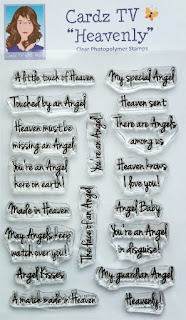 Cardz TV
"Heavenly"
Clear Photopolymer Stamps
A little touch of Heaven
Touched by an Angel
Heaven must be
missing an Angel
You're an Angel
here on earth!
Made in Heaven
May Angels keep
watch over you!
Angel Kisses
A match made in Heaven
You're an Angel
The face of an Angel
My special Angel
Heaven sent
There are Angels
among us
Heaven knows
I love you!
Angel Baby
You're an Angel
in disguise!
My guardian Angel
Heavenly!